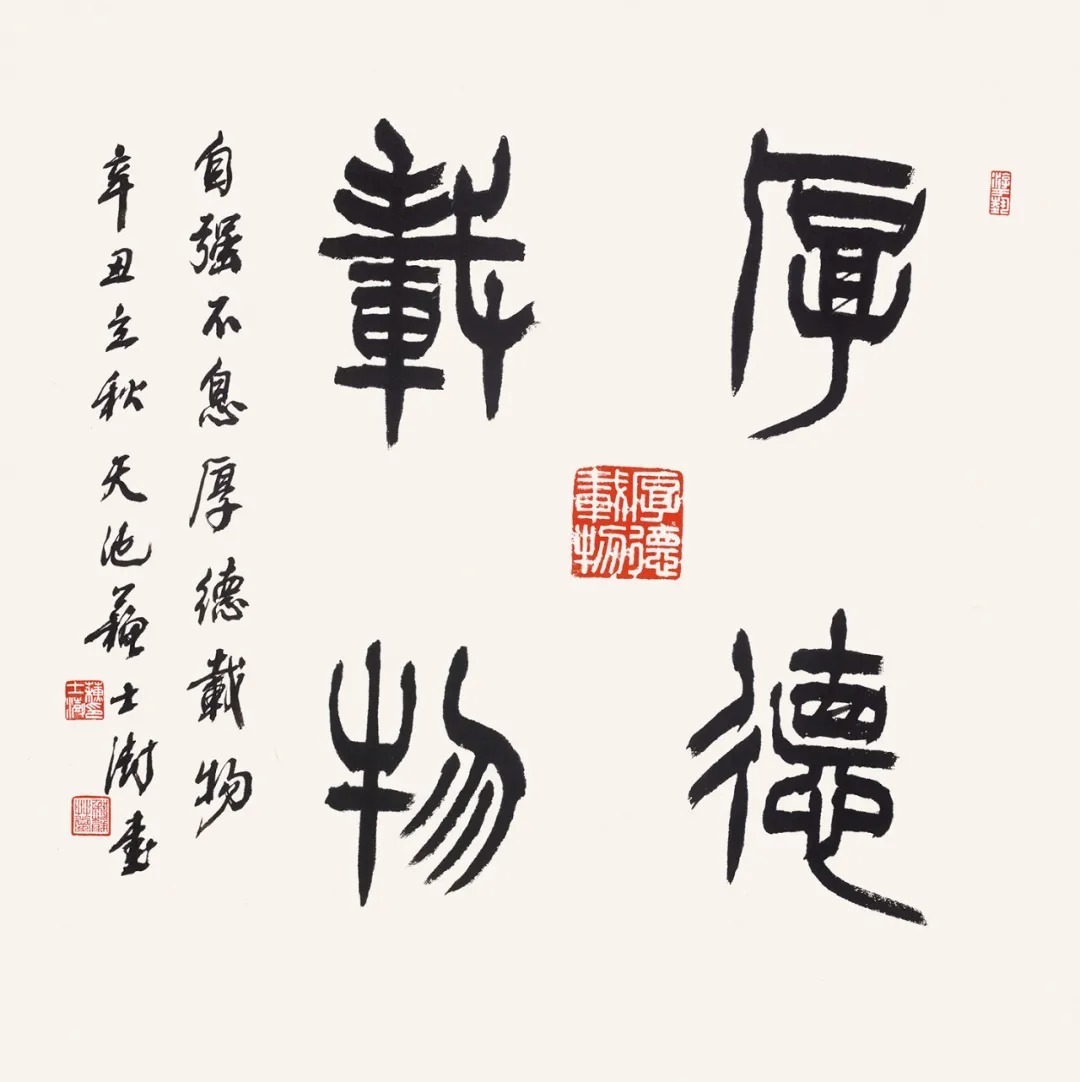 游藝
厚德
載物
厚德
載物
自强不息厚德載物
辛丑立秋天池蘇士澍書